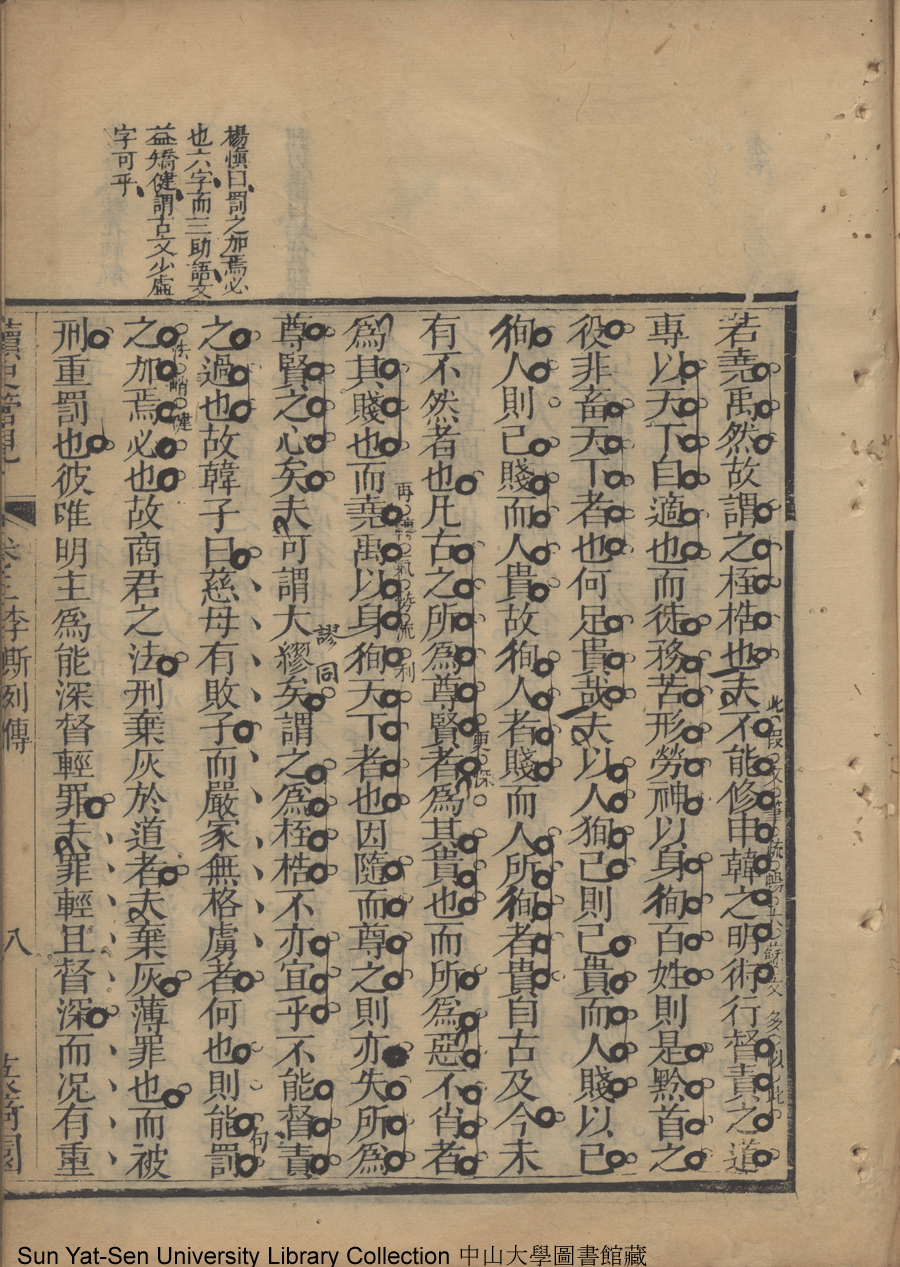 楊愼曰罰之加焉必
也六字而三助語文
益矯健謂古文少虛
字可乎
若堯禹然故謂之桎梏也夫不能修申韓之明術行督責之道
此段文筆疏暢大蘇文多似此
專以天下自適也而徒務苦形勞神以身徇百姓則是黔首之
役非畜天下者也何足貴哉夫以人狥己則己貴而人賤以己
狥人則己賤而人貴故狥人者賤而人所狥者貴自古及今未
更深
有不然者也凡古之所爲尊賢者爲其貴也而所爲惡不肖者
再騁氣勢流利
爲其賤也而堯禹以身狥天下者也因隨而尊之則亦失所爲
謬同
尊賢之心矣夫可謂大繆矣謂之爲桎梏不亦宜乎不能督責
句
之過也故韓子曰慈母有敗子而嚴家無格虜者何也則能罰
法峭健
之加焉必也故商君之法刑棄灰於道者夫棄灰薄罪也而被
刑重罰也彼唯明主爲能深督輕罪夫罪輕且督深而況有重
讀史管見 卷三李斯列傳 八
Sun Yat-Sen University Library Collection 中山大學圖書館藏